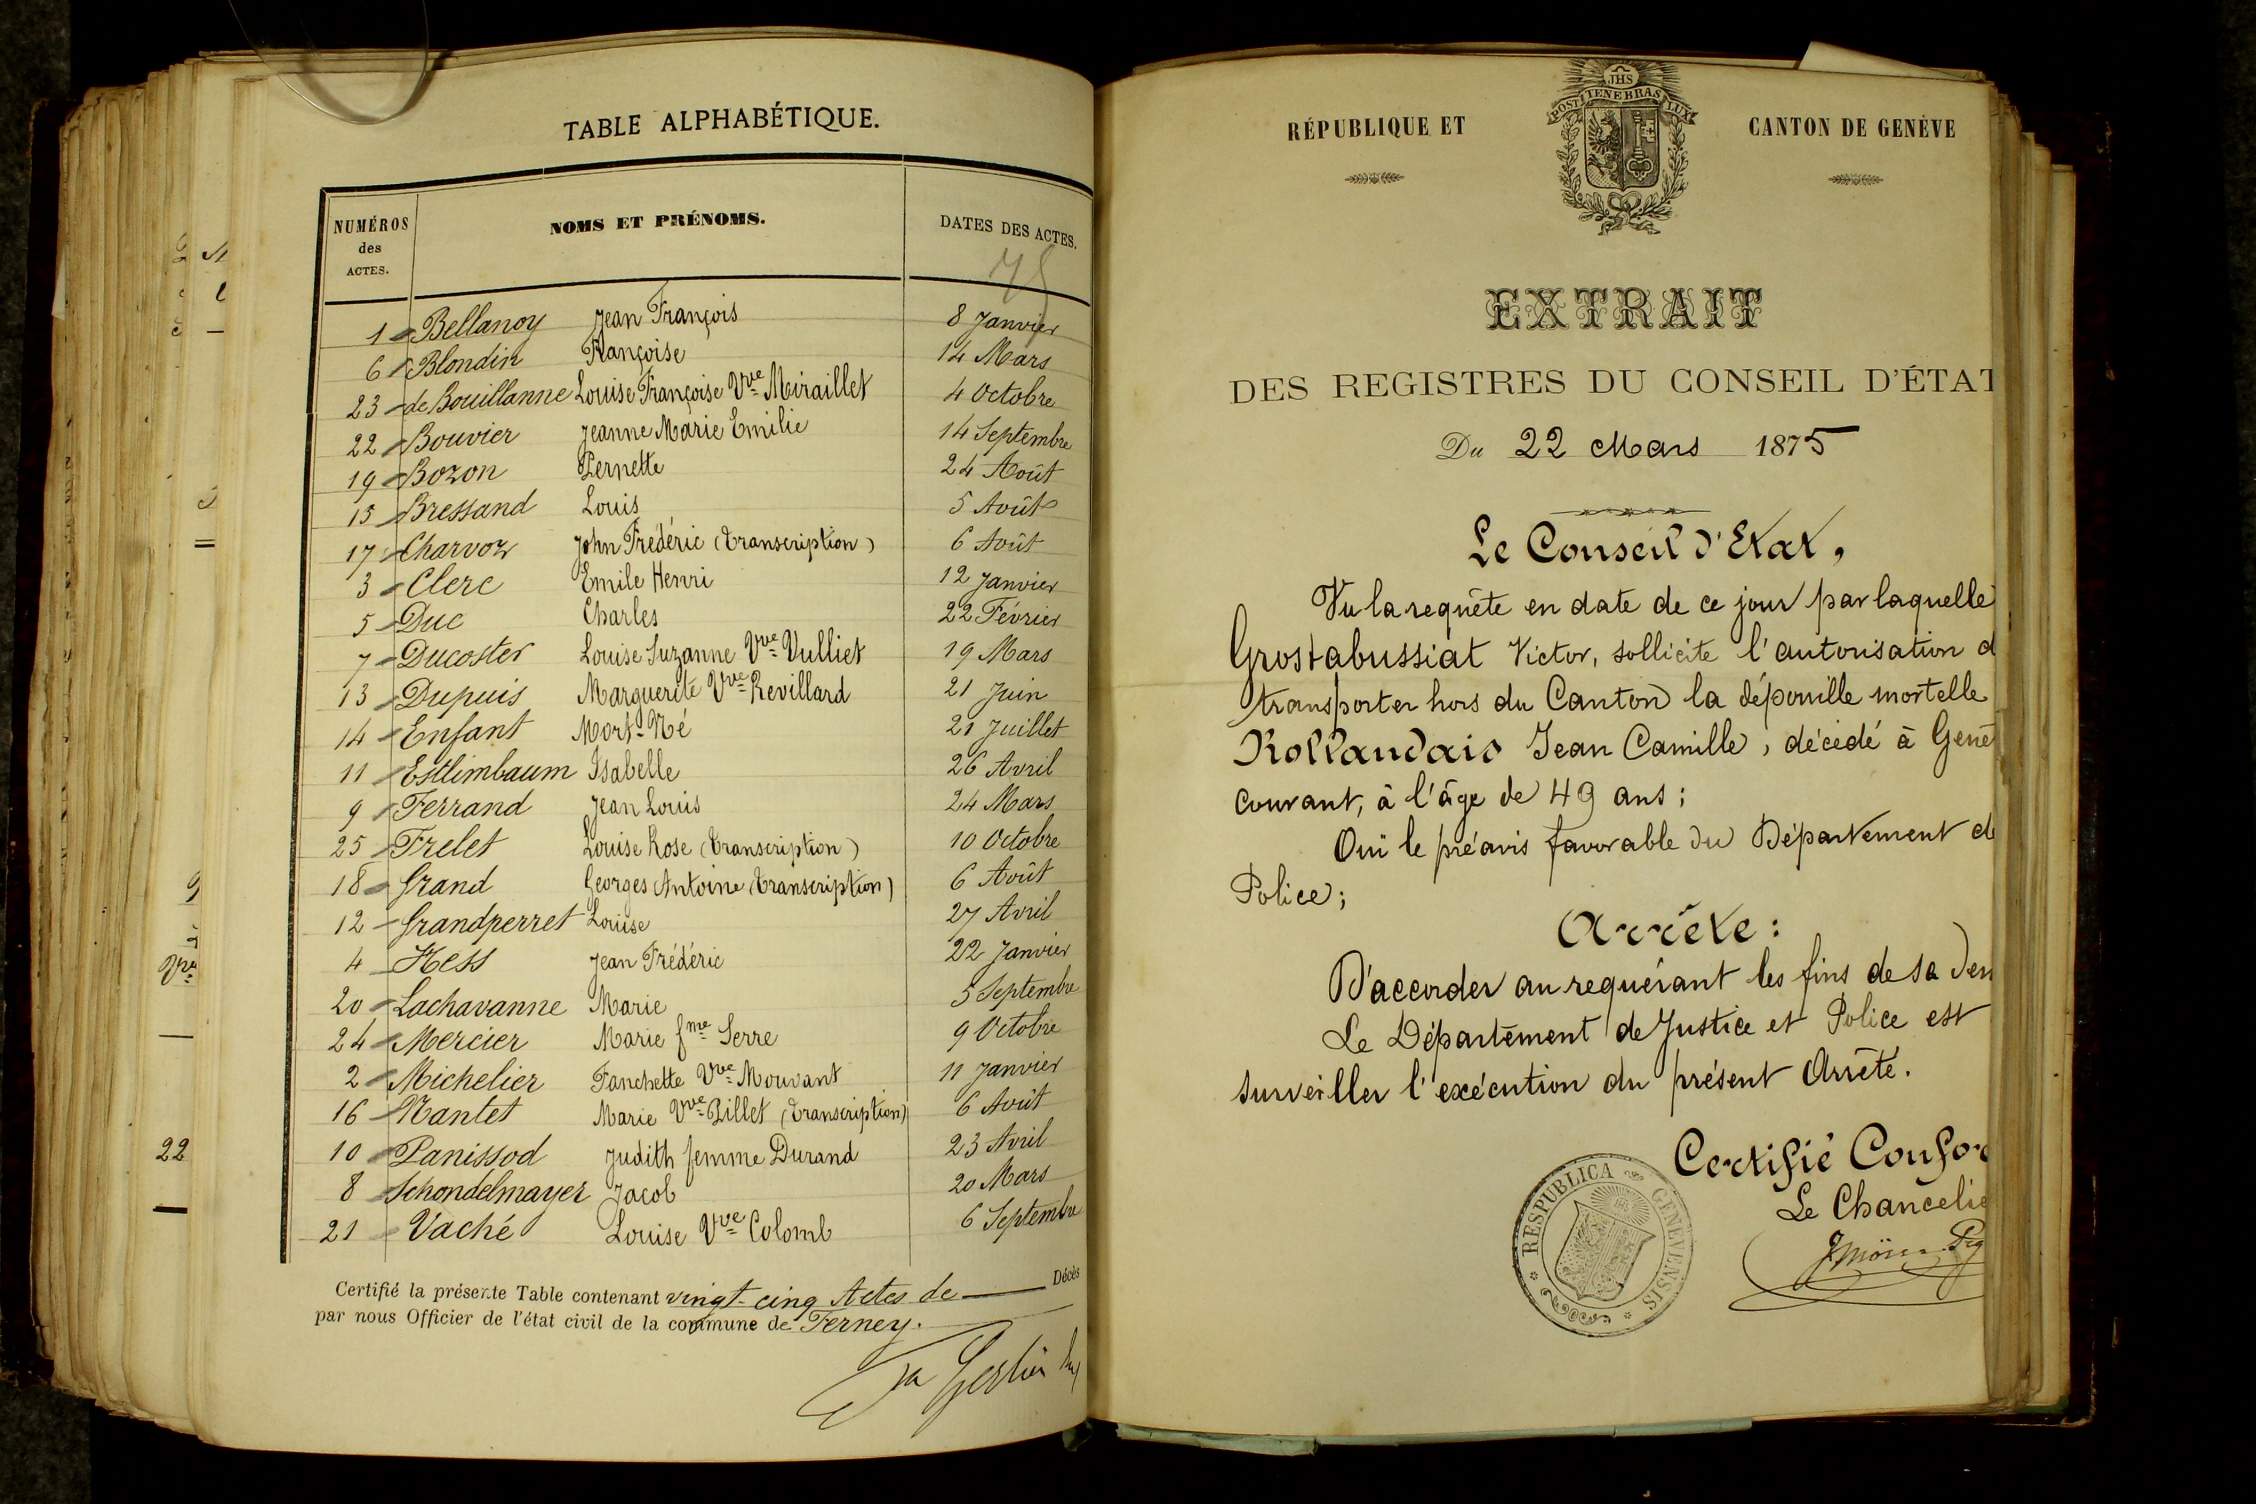 TABLE ALPHABÉTIQUE.
NUMÉROS des ACTES. NOMS ET PRÉNOMS. DATES DES ACTES.
75
1 Bellanoy Jean François 8 Janvier
6 Blondin Françoise 14 Mars
23 de Bouillanne Louise Françoise Vve Miraillet 4 Octobre
22 Bouvier Jeanne Marie Emilie 14 Septembre
19 Bozon Pernette 24 Août
15 Bressand Louis 5 Août
17 Charvoz John Frédéric (Transcription) 6 Août
3 Clerc Emile Henri 12 Janvier
5 Duc Charles 22 Février
7 Ducoster Louise Suzanne Vve Vulliet 19 Mars
13 Dupuis Marguerite Vve Revillard 21 Juin
14 Enfant Mort-Né 21 Juillet
11 Estlimbaum Isabelle 26 Avril
9 Ferrand Jean Louis 24 Mars
25 Frelet Louise Rose (Transcription) 10 Octobre
18 Grand Georges Antoine (Transcription) 6 Août
12 Grandperret Louise 27 Avril
4 Hess Jean Frédéric 22 Janvier
20 Lachavanne Marie 5 Septembre
24 Mercier Marie fme Serre 9 Octobre
2 Michelier Fanchette Vve Mouvant 11 Janvier
16 Nantet Marie Vve Billet (Transcription) 6 Août
10 Panissod Judith femme Durand 23 Avril
8 Schondelmayer Jacob 20 Mars
21 Vaché Louise Vve Colomb 6 Septembre
Certifié la présente Table contenant vingt-cinq Actes de Décès
par nous Officier de l'état civil de la commune de Ferney.
Vve
22
JHS
POST TENEBRAS LUX
RÉPUBLIQUE ET CANTON DE GENÈVE
EXTRAIT
DES REGISTRES DU CONSEIL D'ÉTAT
Du 22 Mars 1875
Le Conseil d'Etat,
Vu la requête en date de ce jour par laquelle
Grostabussiat Victor, sollicite l'autorisation d
transporter hors du Canton la dépouille mortelle
Rollandais Jean Camille, décédé à Genè
courant, à l'âge de 49 ans;
Oui le préavis favorable du Département de
Police;
Arrête:
D'accorder au requérant les fins de sa dem
Le Département de Justice et Police est
surveiller l'exécution du présent Arrêté.
Certifié Confor
Le Chancelie
RESPUBLICA GENEVENSIS